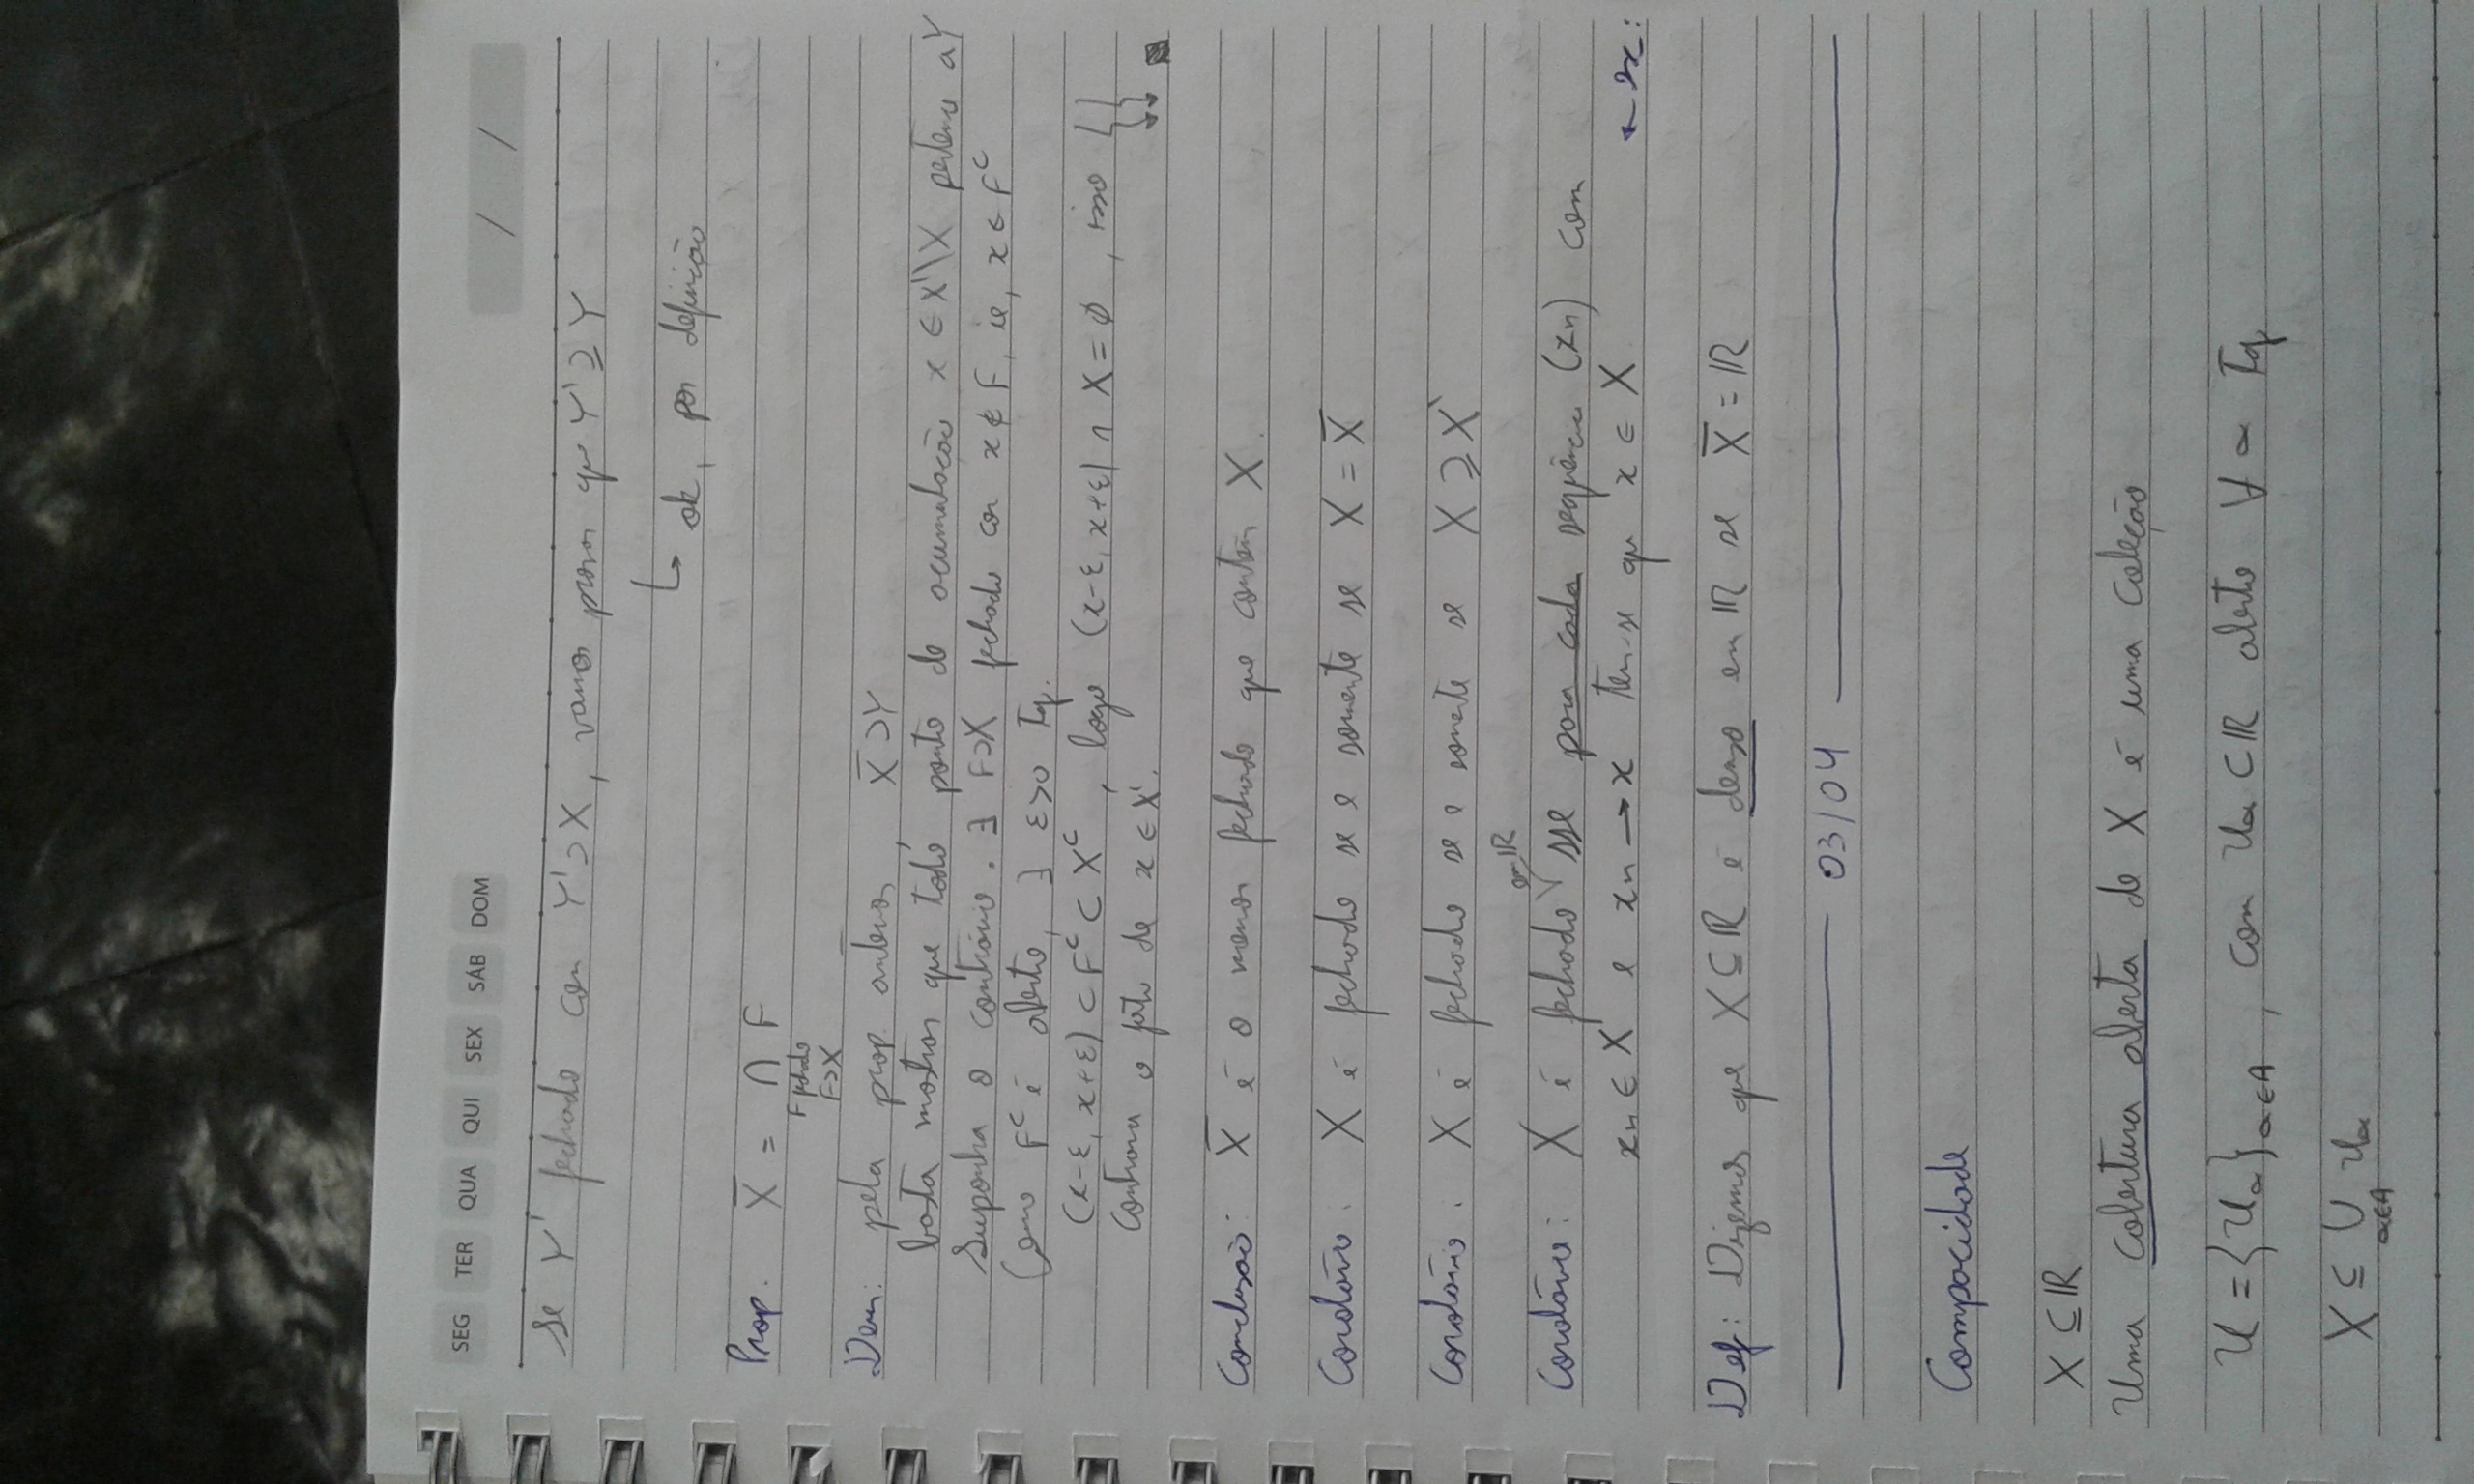 SEG TER QUA QUI SEX SÁB DOM / /
Se Y' fechado com Y' ⊃ X, vamos provar que Y' ⊇ Y
↳ ok, por definição
Prop. X̅ = ∩ F
F fechado
F⊃X
Dem: pela prop. anterior, X̅ ⊃ Y
basta mostrar que todo ponto de acumulação x ∈ X'\X pertence a Y
Suponha o contrário. ∃ F⊃X fechado com x ∉ F, ie, x ∈ Fᶜ
Como Fᶜ é aberto, ∃ ε>0 Tq.
(x-ε, x+ε) ⊂ Fᶜ ⊂ Xᶜ, logo (x-ε, x+ε) ∩ X = ∅, isso
contraria o fato de x ∈ X'.
Conclusão: X̅ é o menor fechado que contém X.
Corolário: X é fechado se e somente se X = X̅
Corolário: X é fechado se e somente se X ⊇ X'
Corolário: X é fechado em ℝ sse para cada sequência (xn) com
xn ∈ X e xn → x tem-se que x ∈ X ← ex:
Def: Dizemos que X ⊆ ℝ é denso em ℝ se X̅ = ℝ
03/04
Compacidade
X ⊆ ℝ
Uma cobertura aberta de X é uma coleção
U = {Uα}α∈A, com Uα ⊂ ℝ aberto ∀ α Tq
X ⊆ ∪ Uα
α∈A